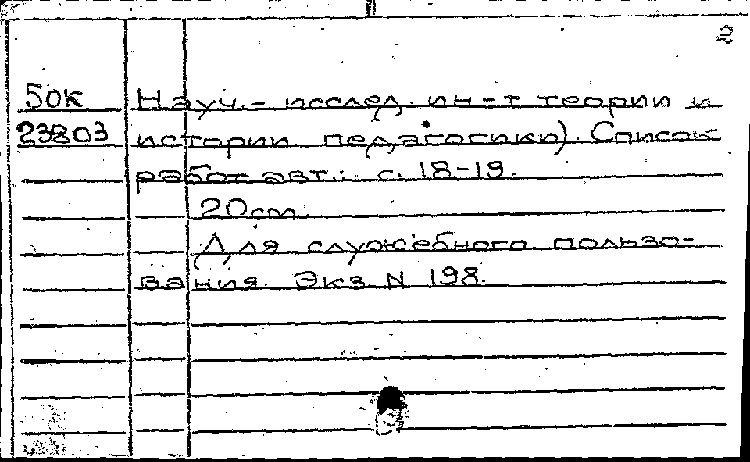 2
50К Науч.- исслед. ин-т теории и
23803 истории педагогики). Список
работ авт.: с. 18-19.
20см.
Для служебного пользо-
вания. Экз N 198.